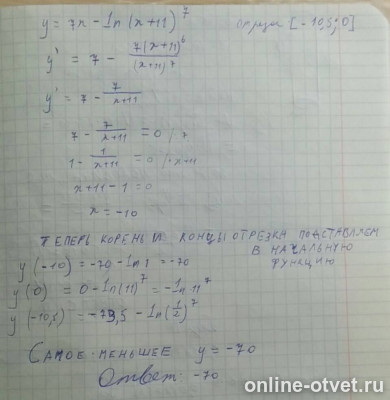 y = 7x - ln(x+11)^7 [-10,5; 0]
y' = 7 - 7(x+11)^6/(x+11)^7
y' = 7 - 7/(x+11)
7 - 7/(x+11) = 0 /7
1 - 1/(x+11) = 0 /·x+11
x+11-1=0
x = -10
ТЕПЕРЬ КОРЕНЬ И КОНЦЫ ОТРЕЗКА ПОДСТАВЛЯЕМ
В НАЧАЛЬНУЮ
ФУНКЦИЮ
y(-10) = -70 - ln1 = -70
y(0) = 0 - ln(11)^7 = -ln11^7
y(-10,5) = -73,5 - ln(1/2)^7
САМОЕ МЕНЬШЕЕ y = -70
Ответ: -70
online-otvet.ru